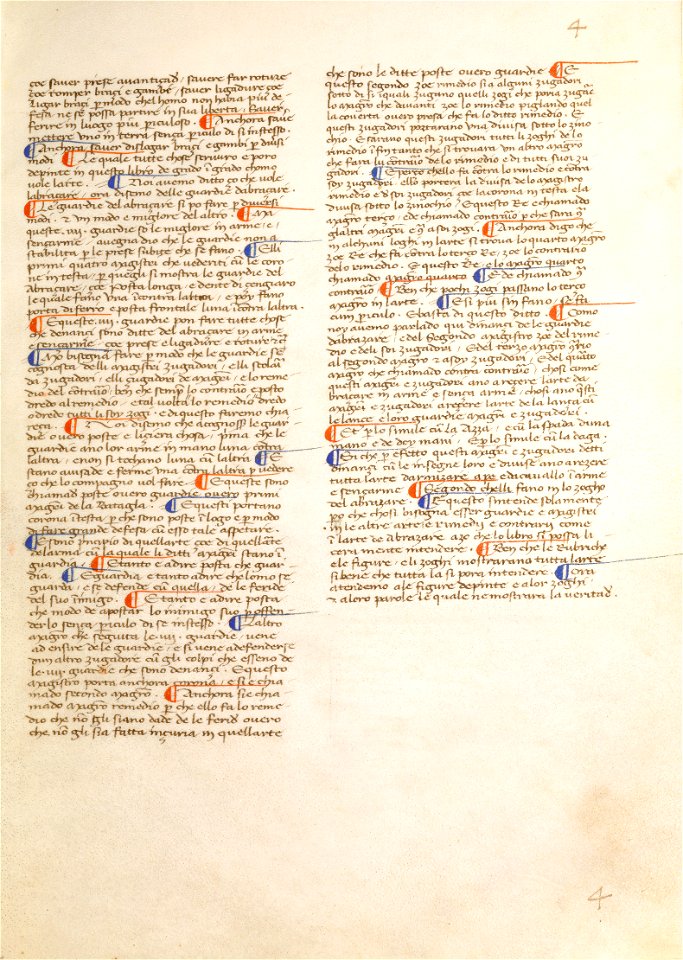 4
çoe saver prese avantiçade / savere far roture
çoe romper braçi e gambe / saver ligadure çoe
ligar braçi per modo che lomo non habia più de-
fesa ne se possa partire in sua liberta. Saver
ferire in luogo più periculoso. ¶ Anchora save
mettere uno in terra sença periculo di si instesso.
¶ Anchora saver dislogar braçi e gambe per diversi
modi. ¶ Le quale tutte chose scrivero e poro
depinte in questo libro de grado in grado chomo
vole larte. ¶ Noi avemo ditto ço che vole
labraçare / ora disemo delle guardie dabraçare.
¶ Le guardie del abraçare si po fare per diversi
modi. E un modo e migliore del altro. ¶ Ma
queste .iiij. guardie so le migliore in arme / e /
sençarme / avegna dio che le guardie non a
stabilita per le prese subite che se fano. ¶ E lli
primi quatro magistri che vederiti cum le coro-
ne in testa / per quegli si mostra le guardie del
abraçare / çoe Posta longa / e dente di cengiaro
le quale fano una incontra laltra / e poy fano
porta di ferro e posta frontale luna incontra laltra.
¶ E queste .iiij. guardie pon fare tutte chose
che denanci sono ditte del abraçare in arme
e sençarme / çoe prese e ligadure e roture etc
¶ Mo bisogna fare per modo che le guardie se
cognosca delli magistri zugadori / elli scolari
da zugadori / elli zugadori da magistri / e lo reme-
dio del contrario / ben che sempre lo contrario e posto
dredo al remedio / e tal volta lo remedio dredo
o dredo tutti li soy zogi / e di questo faremo chia-
reça. ¶ Noi disemo che acognosser le guar-
die overo poste e liçiera chosa / prima che le
guardie ano lor arme in mano luna contra
laltra / e non si tochano luna cum laltra ¶ E
stano avisade e ferme una contra laltra per vedere
ço che lo compagno vol fare. ¶ E queste sono
chiamade poste overo guardie overo primi
magistri de la Batagla. ¶ E questi portano
corona in testa / per che sono poste in logo e per modo
di fare grande defesa cum esso tale aspetare.
¶ E sono principio di quellarte çoe di quellarte
delarma cum la quale li ditti magistri stano in
guardia. ¶ E tanto e adire posta che guar-
dia. ¶ E guardia e tanto adire che lomo se
guarda / e se defende cum quella / de le feride
del suo inimigo. ¶ E tanto e adire posta
che modo de apostar lo inimigo suo per offen-
derlo sença periculo di se instesso. ¶ Laltro
magistro che seguita le .iiij. guardie / vene
ad ensire de le guardie / e si vene adefenderse
dun altro zugadore cum gli colpi che esseno de
le .iiij. guardie che sono denançi. E questo
magistro porta anchora corona / e si e chia-
mado secondo magistro. ¶ Anchora si e chia-
mado magistro remedio per che ello fa lo reme-
dio che non gli siano dade de le feride overo
che non gli sia fatta inçuria in quellarte
che sono le ditte poste overo guardie ¶ E
questo segondo çoe rimedio si a alguni zugadori
sotto di si i quali zugano quelli zogi che poria zugare
lo magistro che davanti çoe lo rimedio piglando quel
la coverta overo presa che fa lo ditto rimedio. E
questi zugadori portarano una divisa sotto lo zino-
chio. E farano questi zugadori tutti li zoghi de lo
rimedio in fin tanto che si trovara un altro magistro
che fara lu contrario de lo rimedio e di tutti suoi zu
gadori. ¶ E perço chello fa contra lo rimedio e contra
soy zugadori / ello portera la divisa de lo magistro
rimedio e de soi zugadori çoe la corona in testa e la
divisa sotto lo zinochio. E questo Re e chiamado
magistro terço / ede chiamado contrario per che fara contra
gl'altri magistri e contra asoi zogi. ¶ Anchora digo che
in alchuni loghi in larte si trova lo quarto magistro
çoe Re che fa contra lo terço Re / çoe lo contrario
de lo rimedio. E questo Re e lo magistro quarto
chiamado magistro quarto ¶ E de chiamado contra
contrario ¶ Ben che pochi zogi passano lo terço
magistro in larte. ¶ E si più sin fano / se fa
cum periculo. E basta di questo ditto. ¶ Como
noy avemo parlado qui dinanci de le guardie
dabrazare / e del Segondo magistro zoe del rime-
dio e deli soi zugadori / E del terzo magistro contrario
al segondo magistro e a soy zugadori / E del quarto
magistro che chiamado contra contrario / chosi come
questi magistri e zugadori ano arezere larte da-
braçare in arme e sença arme / chosi ano questi
magistri e zugadori arezere larte de la lança cum
le lance e loro guardie magistri e zugadori.
¶ Et per lo simile cum la Azza / e cum la spada duna
mano e de doy mani. E per lo simile cum la daga.
¶ Si che per efetto questi magistri e zugadori detti
dinanzi cum le insegne loro e divise ano arezere
tutta larte darmizare a pe e da cavallo in arme
e sençarme ¶ Segondo chelli fano in lo zogho
del abrazare. ¶ E questo sintende solamente
perço che chosi bisogna esser guardie e magistri
in le altre arte e rimedii e contrarii come
in larte de abrazare / azo che lo libro si possa li
çera mente intendere. ¶ Ben che le Rubriche
e le figure / e li zoghi mostrarano tutta larte
si bene che tutta la si pora intendere. ¶ Ora
atendemo a le figure depinte e a lor zoghi
e a loro parole / e quale ne mostrara la veritade.
4